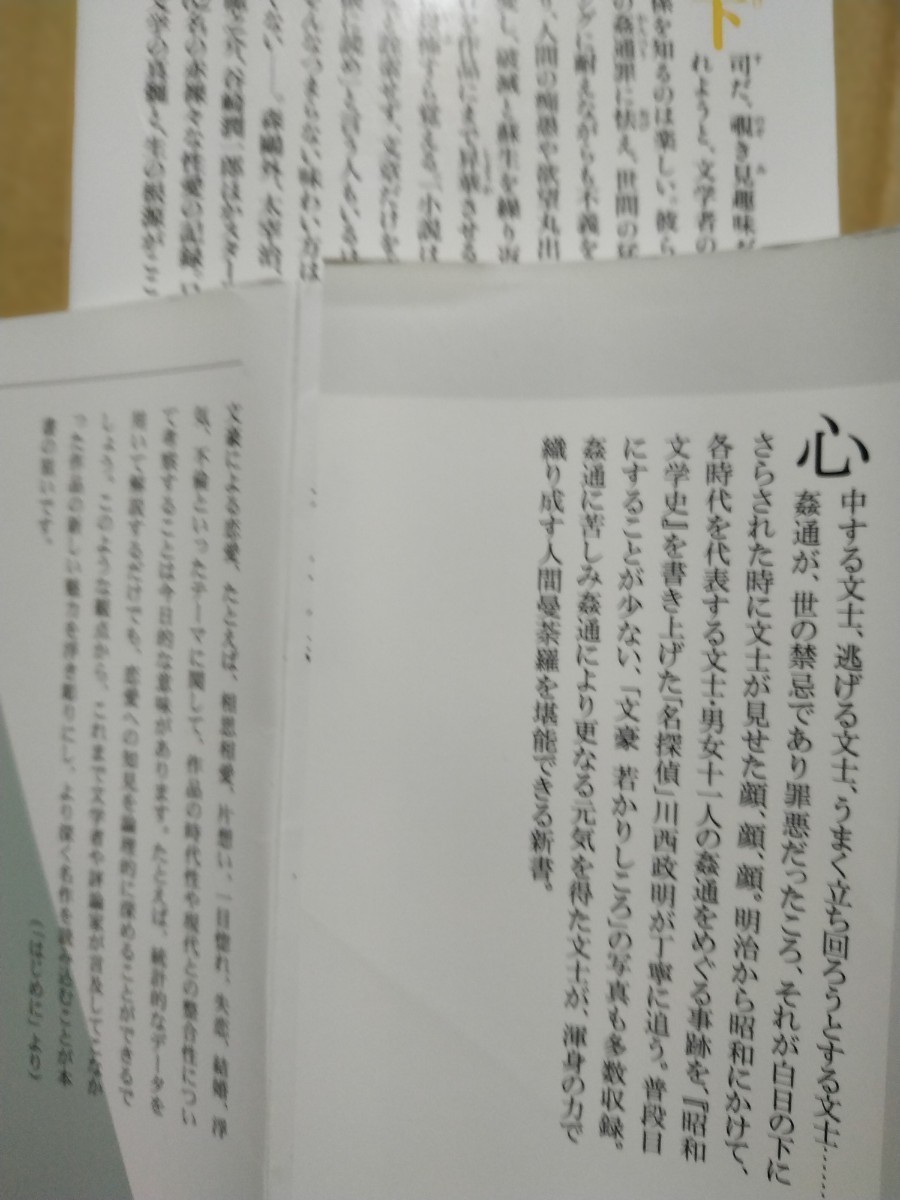 下
司だ、覗き見趣味だ
れようと、文学者の
係を知るのは楽しい。彼ら
の姦通罪に怯え、世間の
グに耐えながらも不義を
り、人間の痴愚や欲望丸出
し、破滅と蘇生を繰り返
を作品にまで昇華させる
すら覚える。「小説は
せず、文章だけを
に読め」と言う人もいる
んなつまらない味わい方は
くない――。森鷗外、太宰治、
谷崎潤一郎ほかスター
名の赤裸々な性愛の記録
文学の真髄と、生の根源がここ
心中する文士、逃げる文士、うまく立ち回ろうとする文士……
姦通が、世の禁忌であり罪悪だったころ、それが白日の下に
さらされた時に文士が見せた顔、顔、顔。明治から昭和にかけて、
各時代を代表する文士・男女十一人の姦通をめぐる事跡を、『昭和
文学史』を書き上げた「名探偵」川西政明が丁寧に追う。普段目
にすることが少ない、「文豪 若かりしころ」の写真も多数収録。
姦通に苦しみ姦通により更なる元気を得た文士が、渾身の力で
織り成す人間曼荼羅を堪能できる新書。
文豪による恋愛、たとえば、相思相愛、片想い、一目惚れ、失恋、結婚、浮
気、不倫といったテーマに関して、作品の時代性や現代との整合性につい
て考察することは今日的な意味があります。たとえば、統計的なデータを
用いて解説するだけでも、恋愛への知見を論理的に深めることができるで
しょう。このような観点から、これまで文学者や評論家が言及してこなか
った作品の新しい魅力を浮き彫りにし、より深く名作を読み込むことが本
書の狙いです。
（「はじめに」より）